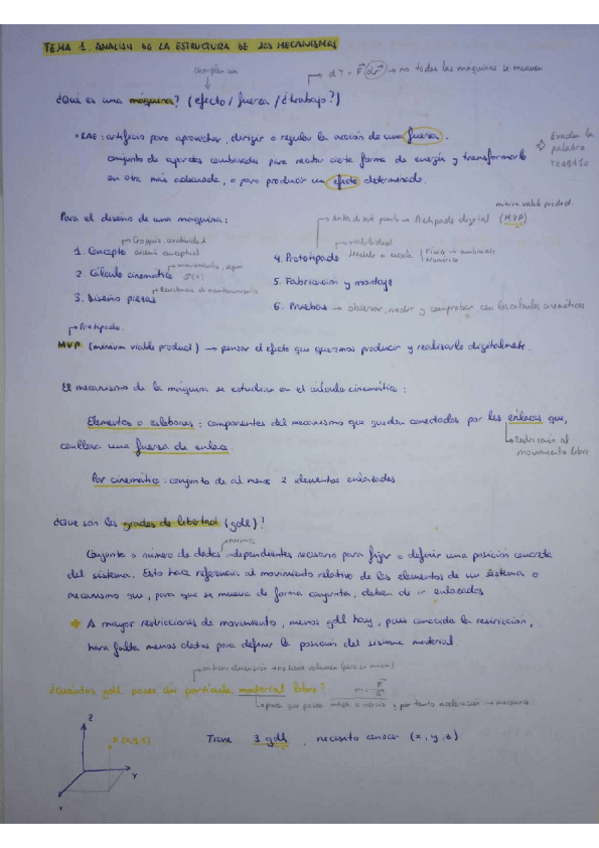 TEMA 1. ANALISIS DE LA ESTRUCTURA DE LOS MECANISMOS
cumplen un
dT = F (dr) → no todas las maquinas se mueven
¿Qué es una máquina? (efecto / fuerza / ¿trabajo?)
• RAE: artificio para aprovechar, dirigir o regular la acción de una fuerza.
conjunto de aparatos combinados para recibir cierta forma de energía y transformarla
en otra más adecuada, o para producir un efecto determinado.
⇨ Evadan la
palabra
TRABAJO
minimum viable product
Para el diseño de una maquina:
Antes de este punto → Prototipado digital (MVP)
Croquis, creatividad
1. Concepto diseño conceptual
viabilidad
4. Prototipado Modelo a escala
Físico
Numérico
2. Cálculo cinemático
5. Fabricación y montaje
Resistencia de
3. Diseño piezas
6. Pruebas → observar, medir y comprobar con los cálculos cinemáticos
Prototipado
MVP (minimum viable product) → pensar el efecto que queremos producir y realizarlo digitalmente.
El mecanismo de la máquina se estudian en el cálculo cinemático:
Elementos o eslabones: componentes del mecanismo que quedan conectados por los enlaces que,
conlleva una fuerza de enlace.
Restricción al
movimiento libre
Par cinemático: conjunto de al menos 2 elementos enlazados
¿Que son los grados de libertad (gdl)?
mínimo
Conjunto o número de datos independientes necesario para fijar o definir una posición concreta
del sistema. Esto hace referencia al movimiento relativo de los elementos de un sistema o
mecanismo que, para que se mueva de forma conjunta, deben de ir enlazados
→ A mayor restricciones de movimiento, menos gdl hay, pues conocida la restricción,
hara falta menos datos para definir la posición del sistema material.
no tiene dimensión → no tiene volumen
¿Cuántos gdl posee una partícula material libre?
m = F/a
para que posea masa o inercia y por tanto aceleración → mecánica
Z
P (x,y,z)
Y
X
Tiene 3 gdl, necesito conocer (x, y, z)